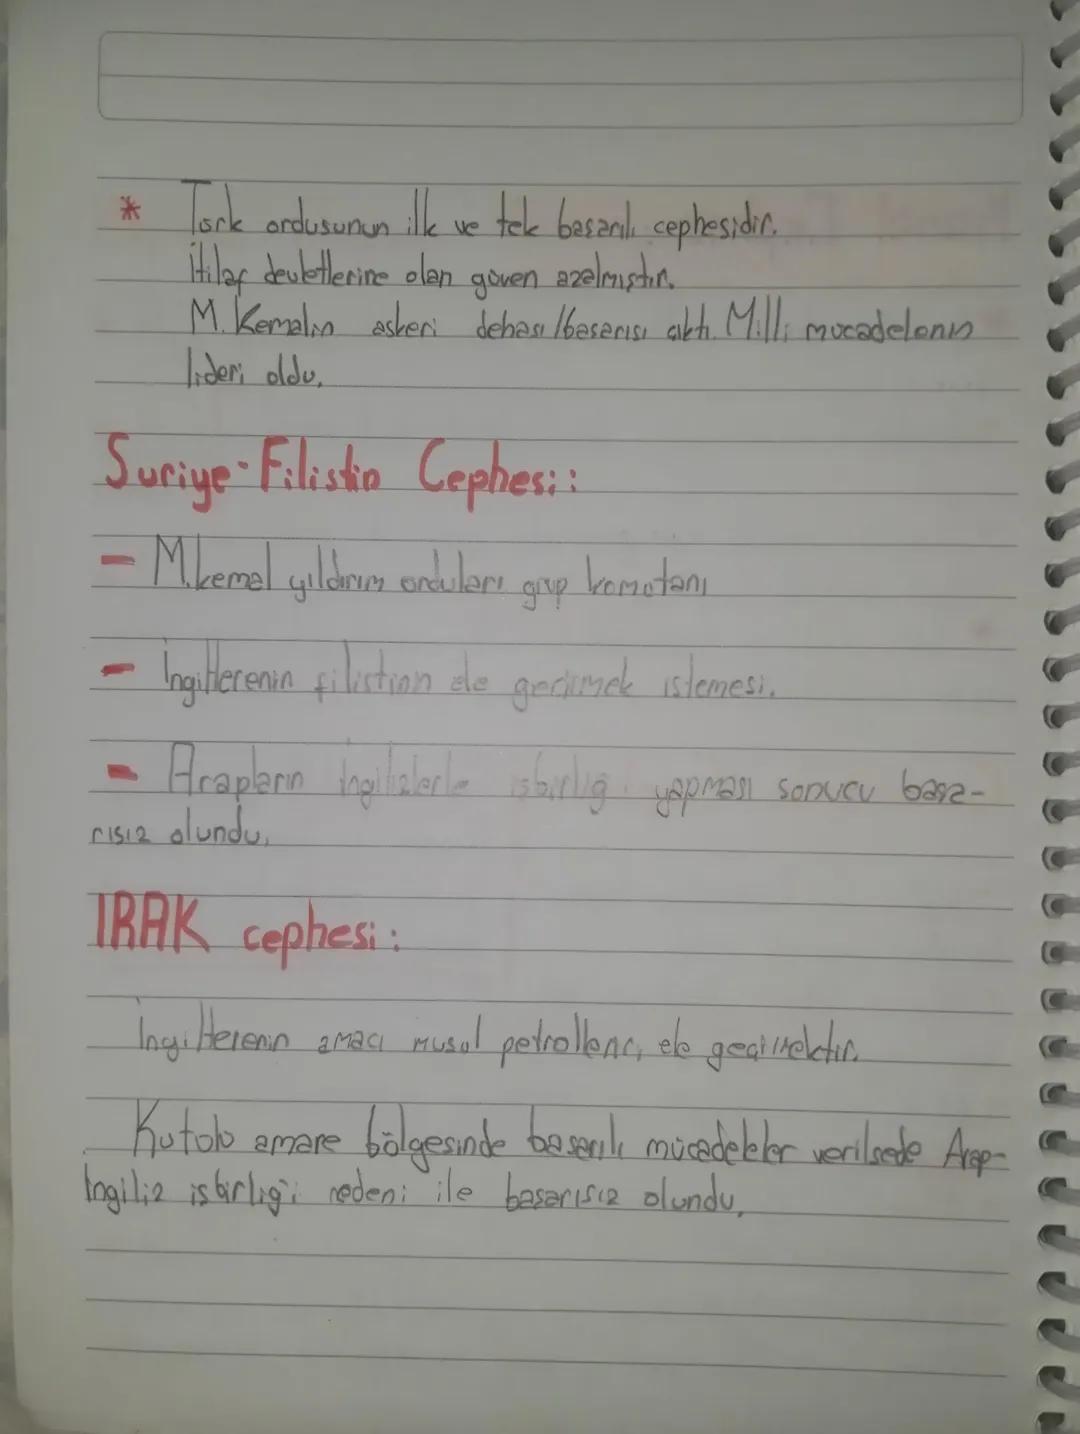 * Türk ordusunun ilk ve tek başarılı cephesidir.
İtilaf devletlerine olan güven azalmıştır.
M. Kemalin askeri dehası/başarısı çıktı. Milli mücadelenin
lideri oldu.
Suriye-Filistin Cephesi:
- M.kemal yıldırım orduları grup komutanı
- İngiltterenin filistinin ele geçirmek istemesi.
- Arapların İngilizlerle işbirliği yapması sonucu başa-
rısız olundu.
IRAK cephesi:
İngiltterenin amacı musul petrollerini ele geçirmektir.
Kutulu amare bölgesinde başarılı mücadeleler verilsede Arap-
İngiliz işbirliği nedeni ile başarısız olundu.